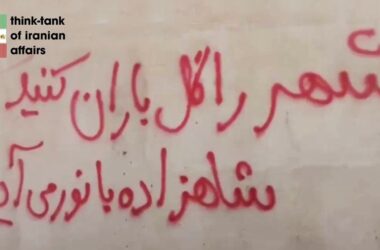 think-tank
of iranian
affairs
شهر را گل باران کنید
شاهزاده با نور می آید